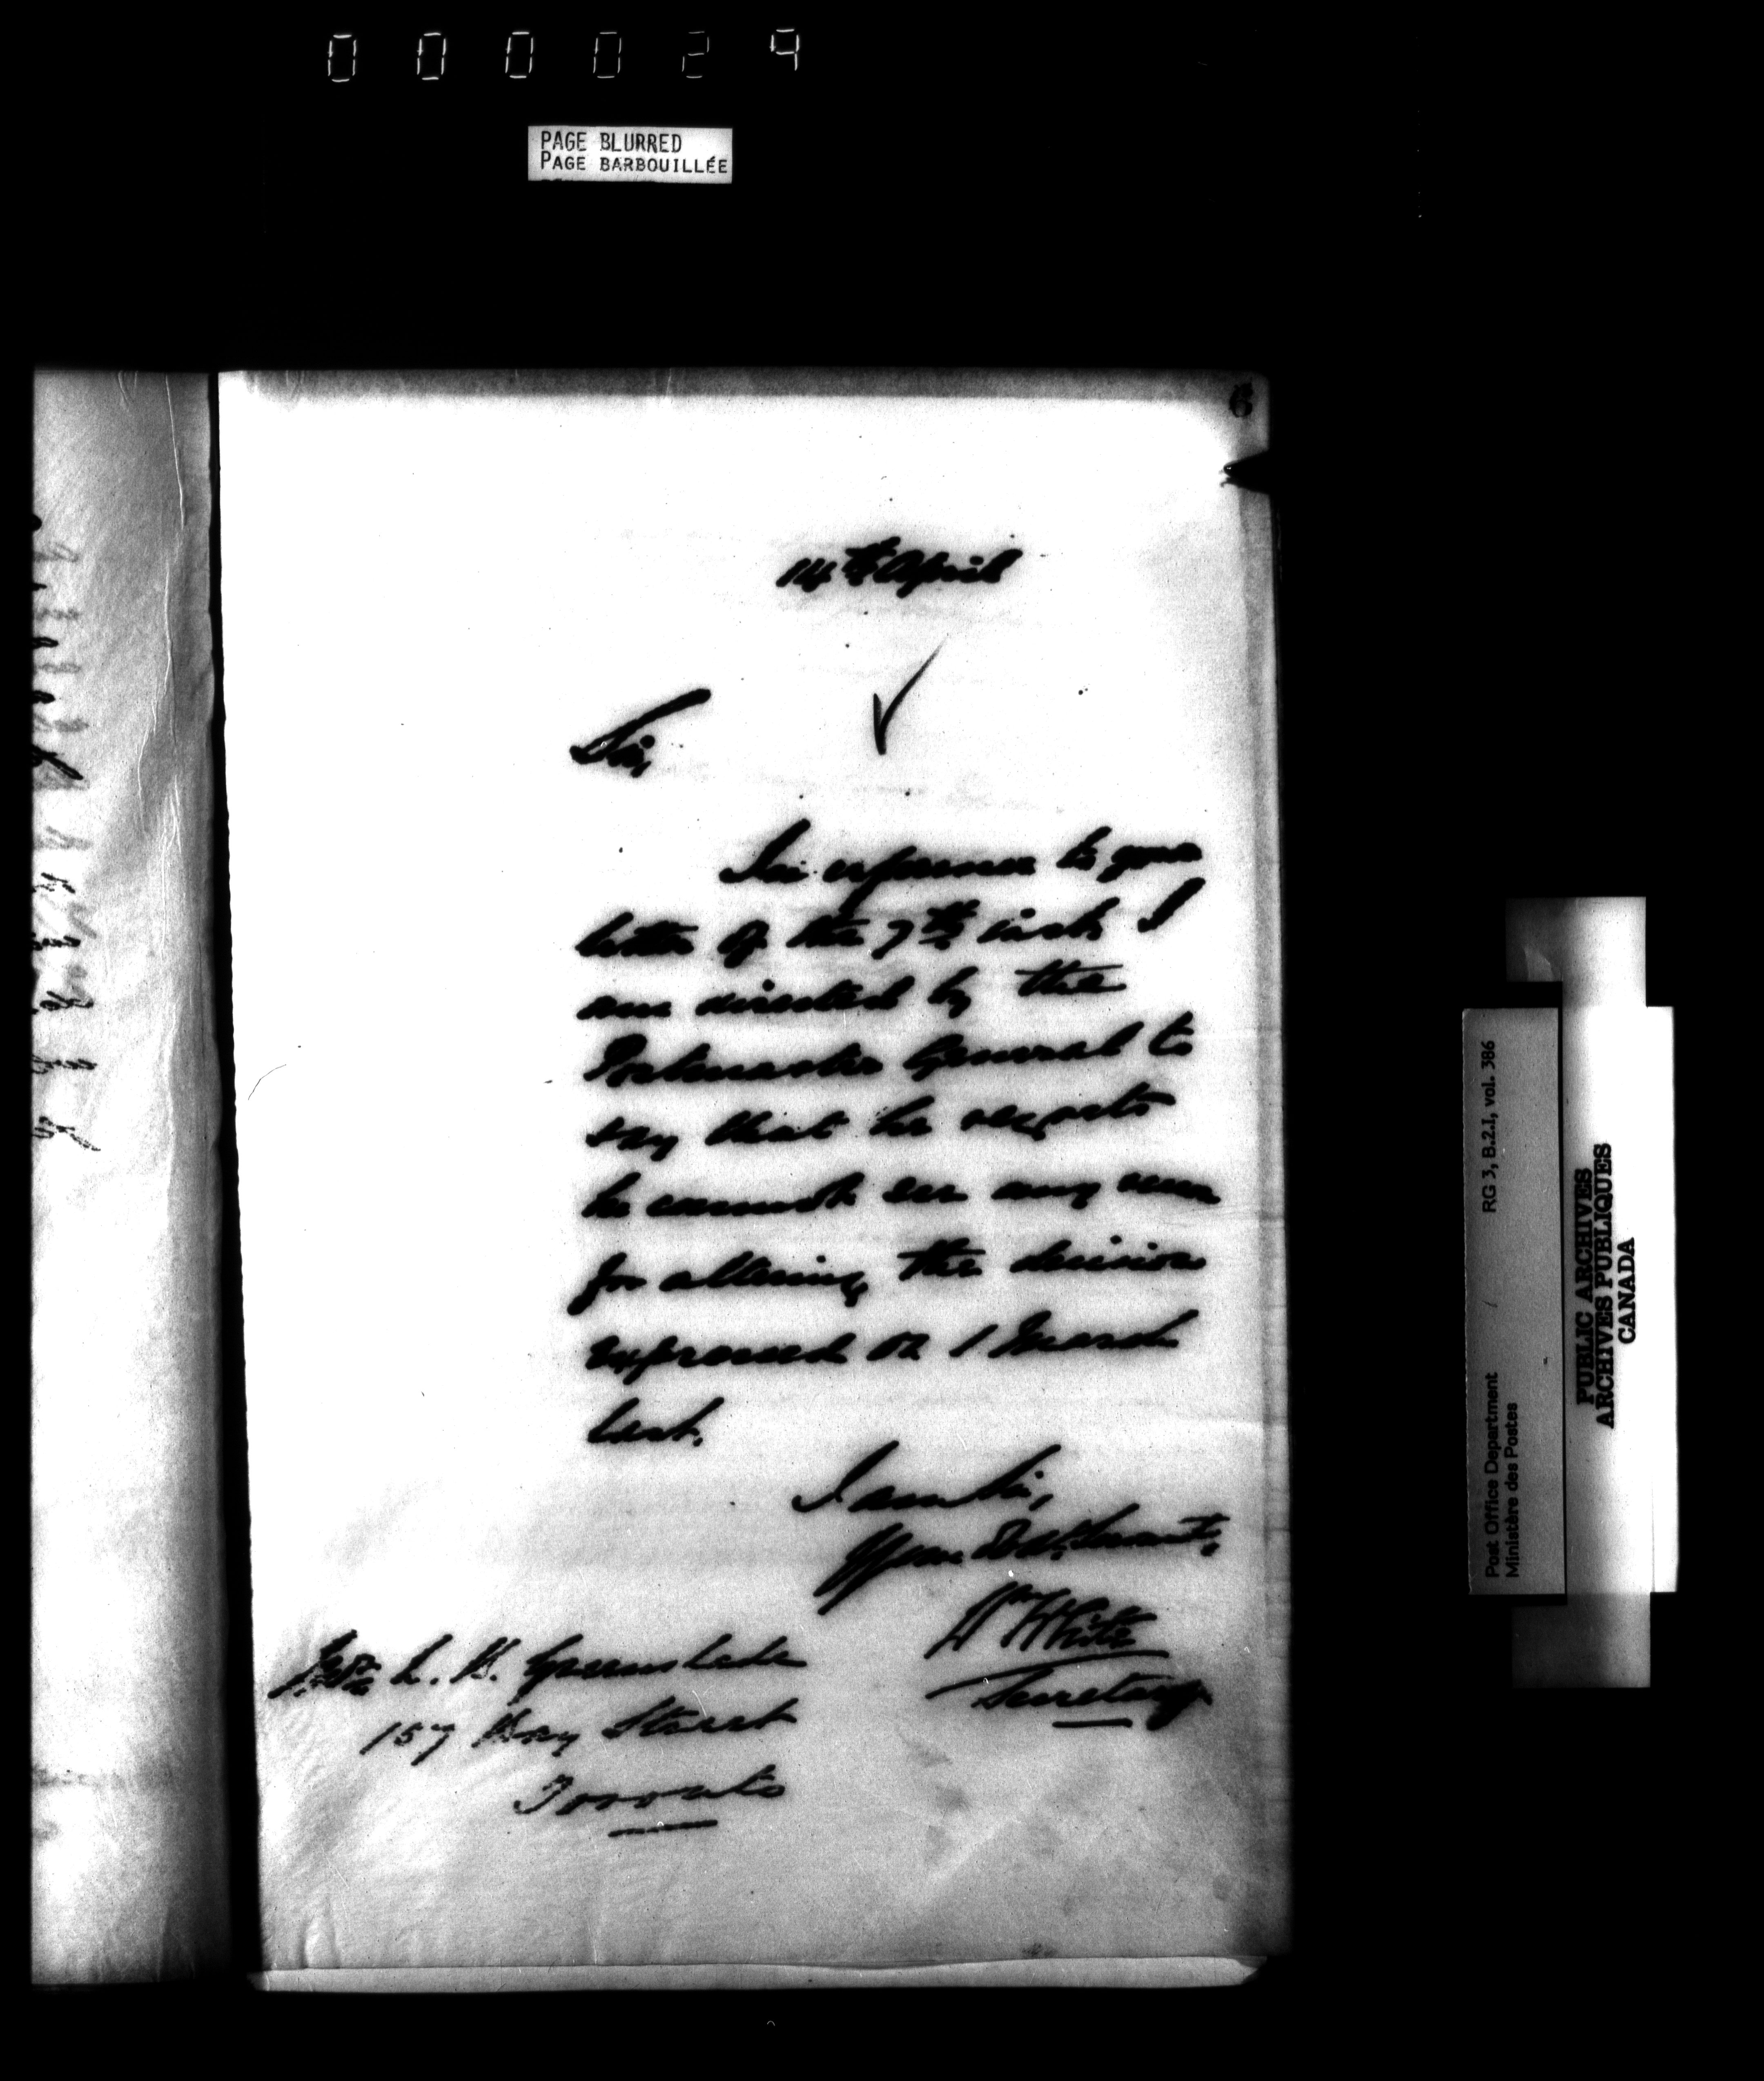 000024
PAGE BLURRED
PAGE BARBOUILLÉE
6
14th April
Sir,
In reference to your
letter of the 7th inst, I
am directed by the
Postmaster General to
say that he regrets
he cannot see any
for altering the decision
expressed on 1 March
last.
I am Sir,
Your Obdt. Servant,
Wm White
Secretary
L. H.
157 Bay Street
Toronto
Post Office Department RG 3, B.2.I, vol. 386
Ministère des Postes
PUBLIC ARCHIVES
ARCHIVES PUBLIQUES
CANADA